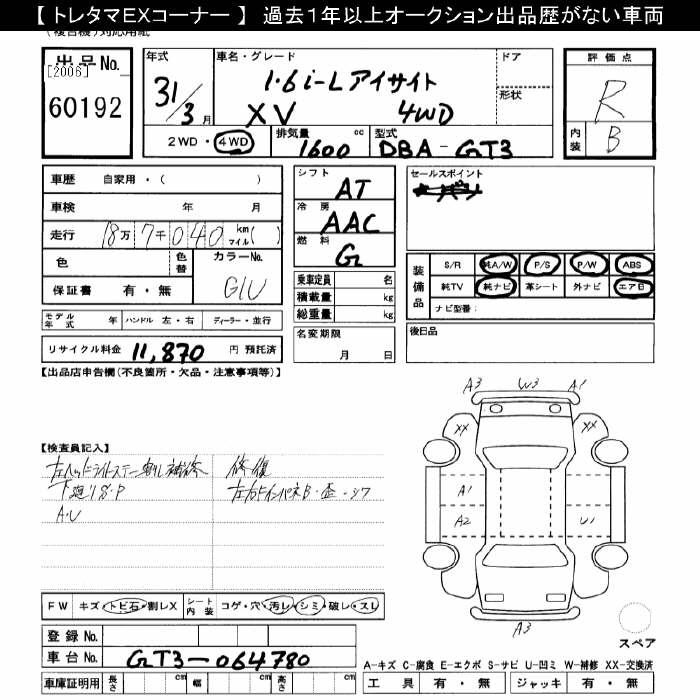 【 トレタマEXコーナー 】 過去1年以上オークション出品歴がない車両
出品No.
[2006]
60192
年式
31/3月
車名・グレード
1.6i-L アイサイト
XV 4WD
ドア
形状
評価点
R
内装 B
2WD・4WD
排気量 1600 cc
型式 DBA-GT3
車歴 自家用・( )
車検 年 月
走行 18万7千040 km マイル( )
色
色替
カラーNo. G1U
保証書 有・無
モデル年式 年 ハンドル 左・右 ディーラー・並行
リサイクル料金 11,870 円 預託済
シフト AT
冷房 AAC
燃料 G
乗車定員 名
積載量 kg
総重量 kg
名変期限
月 日
セールスポイント
装備品
S/R 純A/W P/S P/W ABS
純TV 純ナビ 革シート 外ナビ エアB
ナビ型番:
後日品
【出品店申告欄(不良箇所・欠品・注意事項等)】
【検査員記入】
修復
下廻りS・P
A・U
A3 W3 A1
XX XX
A1
A2 U1
A3
スペア
FW キズ・トビ石・割レX シート内装 コゲ・穴・汚レ・シミ・破レ・スレ
登録No.
車台No. GT3-064780
車庫証明用 長さ cm 幅 cm 高さ cm
A-キズ C-腐食 E-エクボ S-サビ U-凹ミ W-補修 XX-交換済
工具 有・無 ジャッキ 有・無